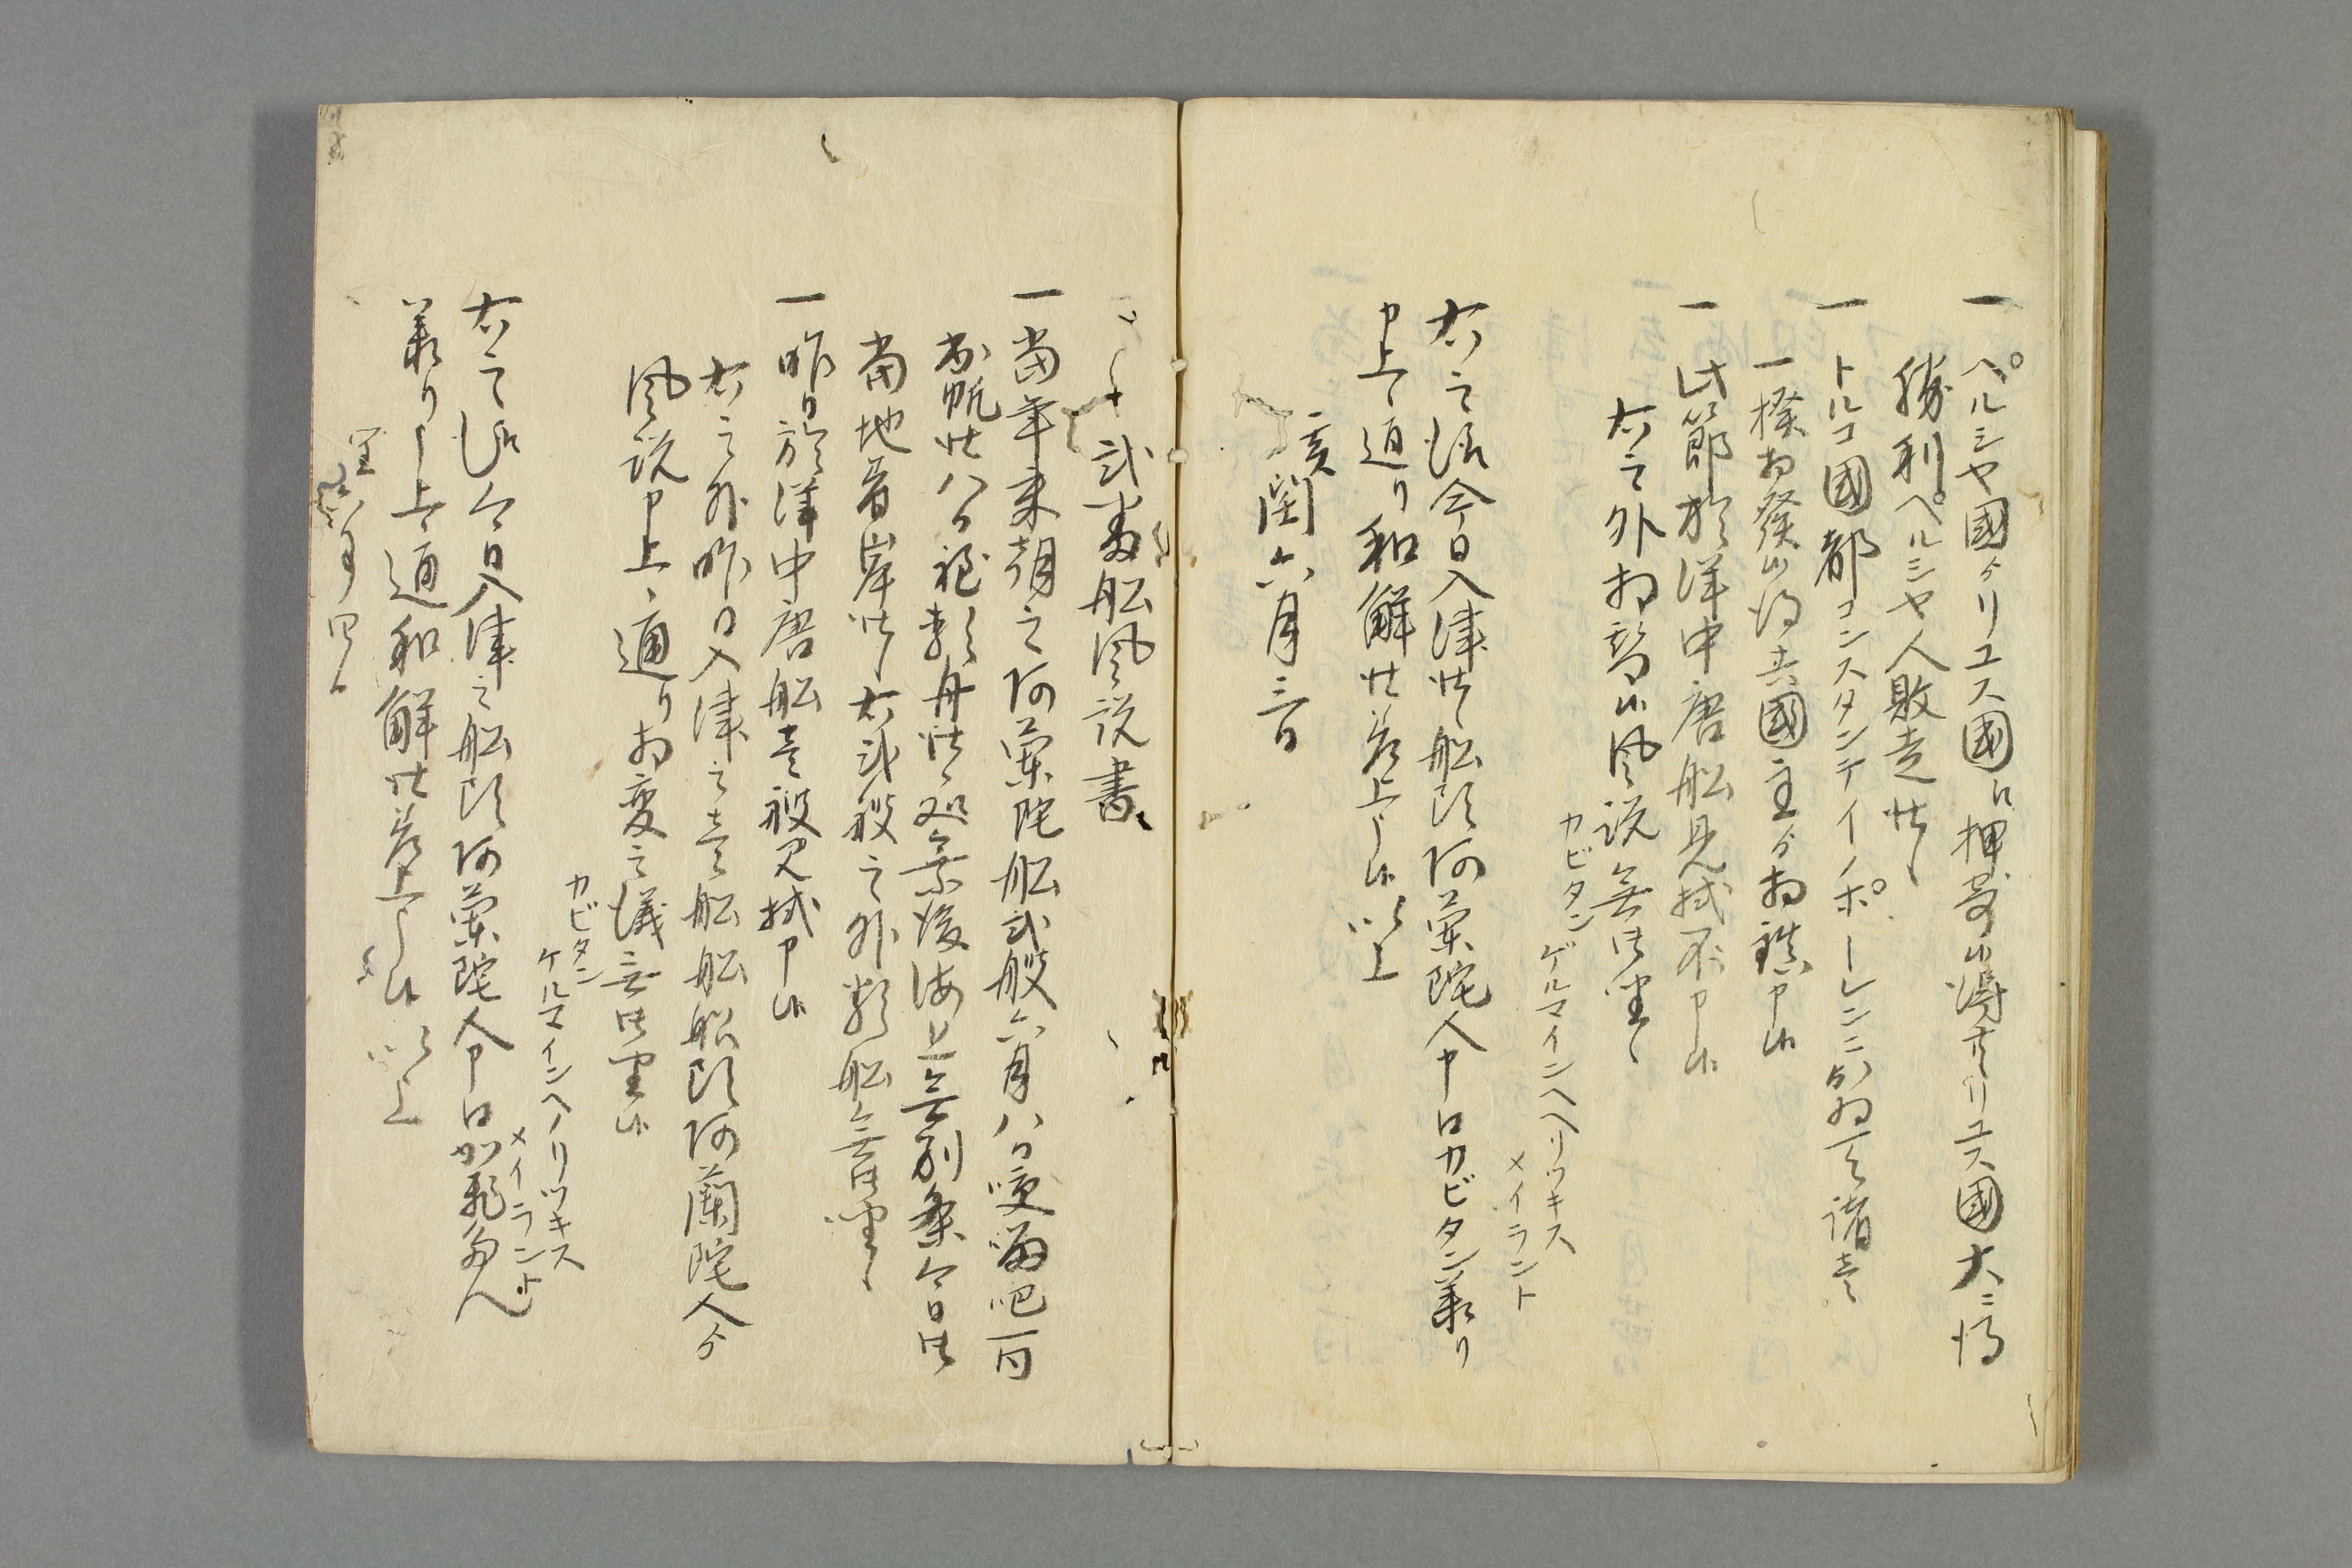 一ペルシヤ國ゟリユス國江押寄候得共リユス國大ニ得
勝利ペルシヤ人敗走仕候
一トルコ國都コンスタンテイノポーレンニおゐて諸
一揆相發候得共國主ゟ相鎮申候
一此節於洋中唐船見掛不申候
右之外相替候風説無御座候
カビタン
ゲルマインヘヘリツキス
メイラント
右之趣今日入津仕候船頭阿蘭陀人申口カビタン承り
申上候通り和解仕差上申候以上
亥閏六月三日
弐番船風説書
一當年来朝之阿蘭陀船弐艘六月八日咬𠺕吧一同
出帆仕八日類舟仕候処無海上無別条今日御
當地着岸仕候右弐艘之外類船無御座候
一昨日於洋中唐船壱艘見掛申候
右之外昨日入津之壱番船船頭阿蘭陀人ゟ
風説申上候通り相変之儀無御座候
カビタン
ケルマインヘノリツキス
メイラント
右之趣今日入津之船頭阿蘭陀人申口かひたん
承り申上候通和解仕差上申候以上